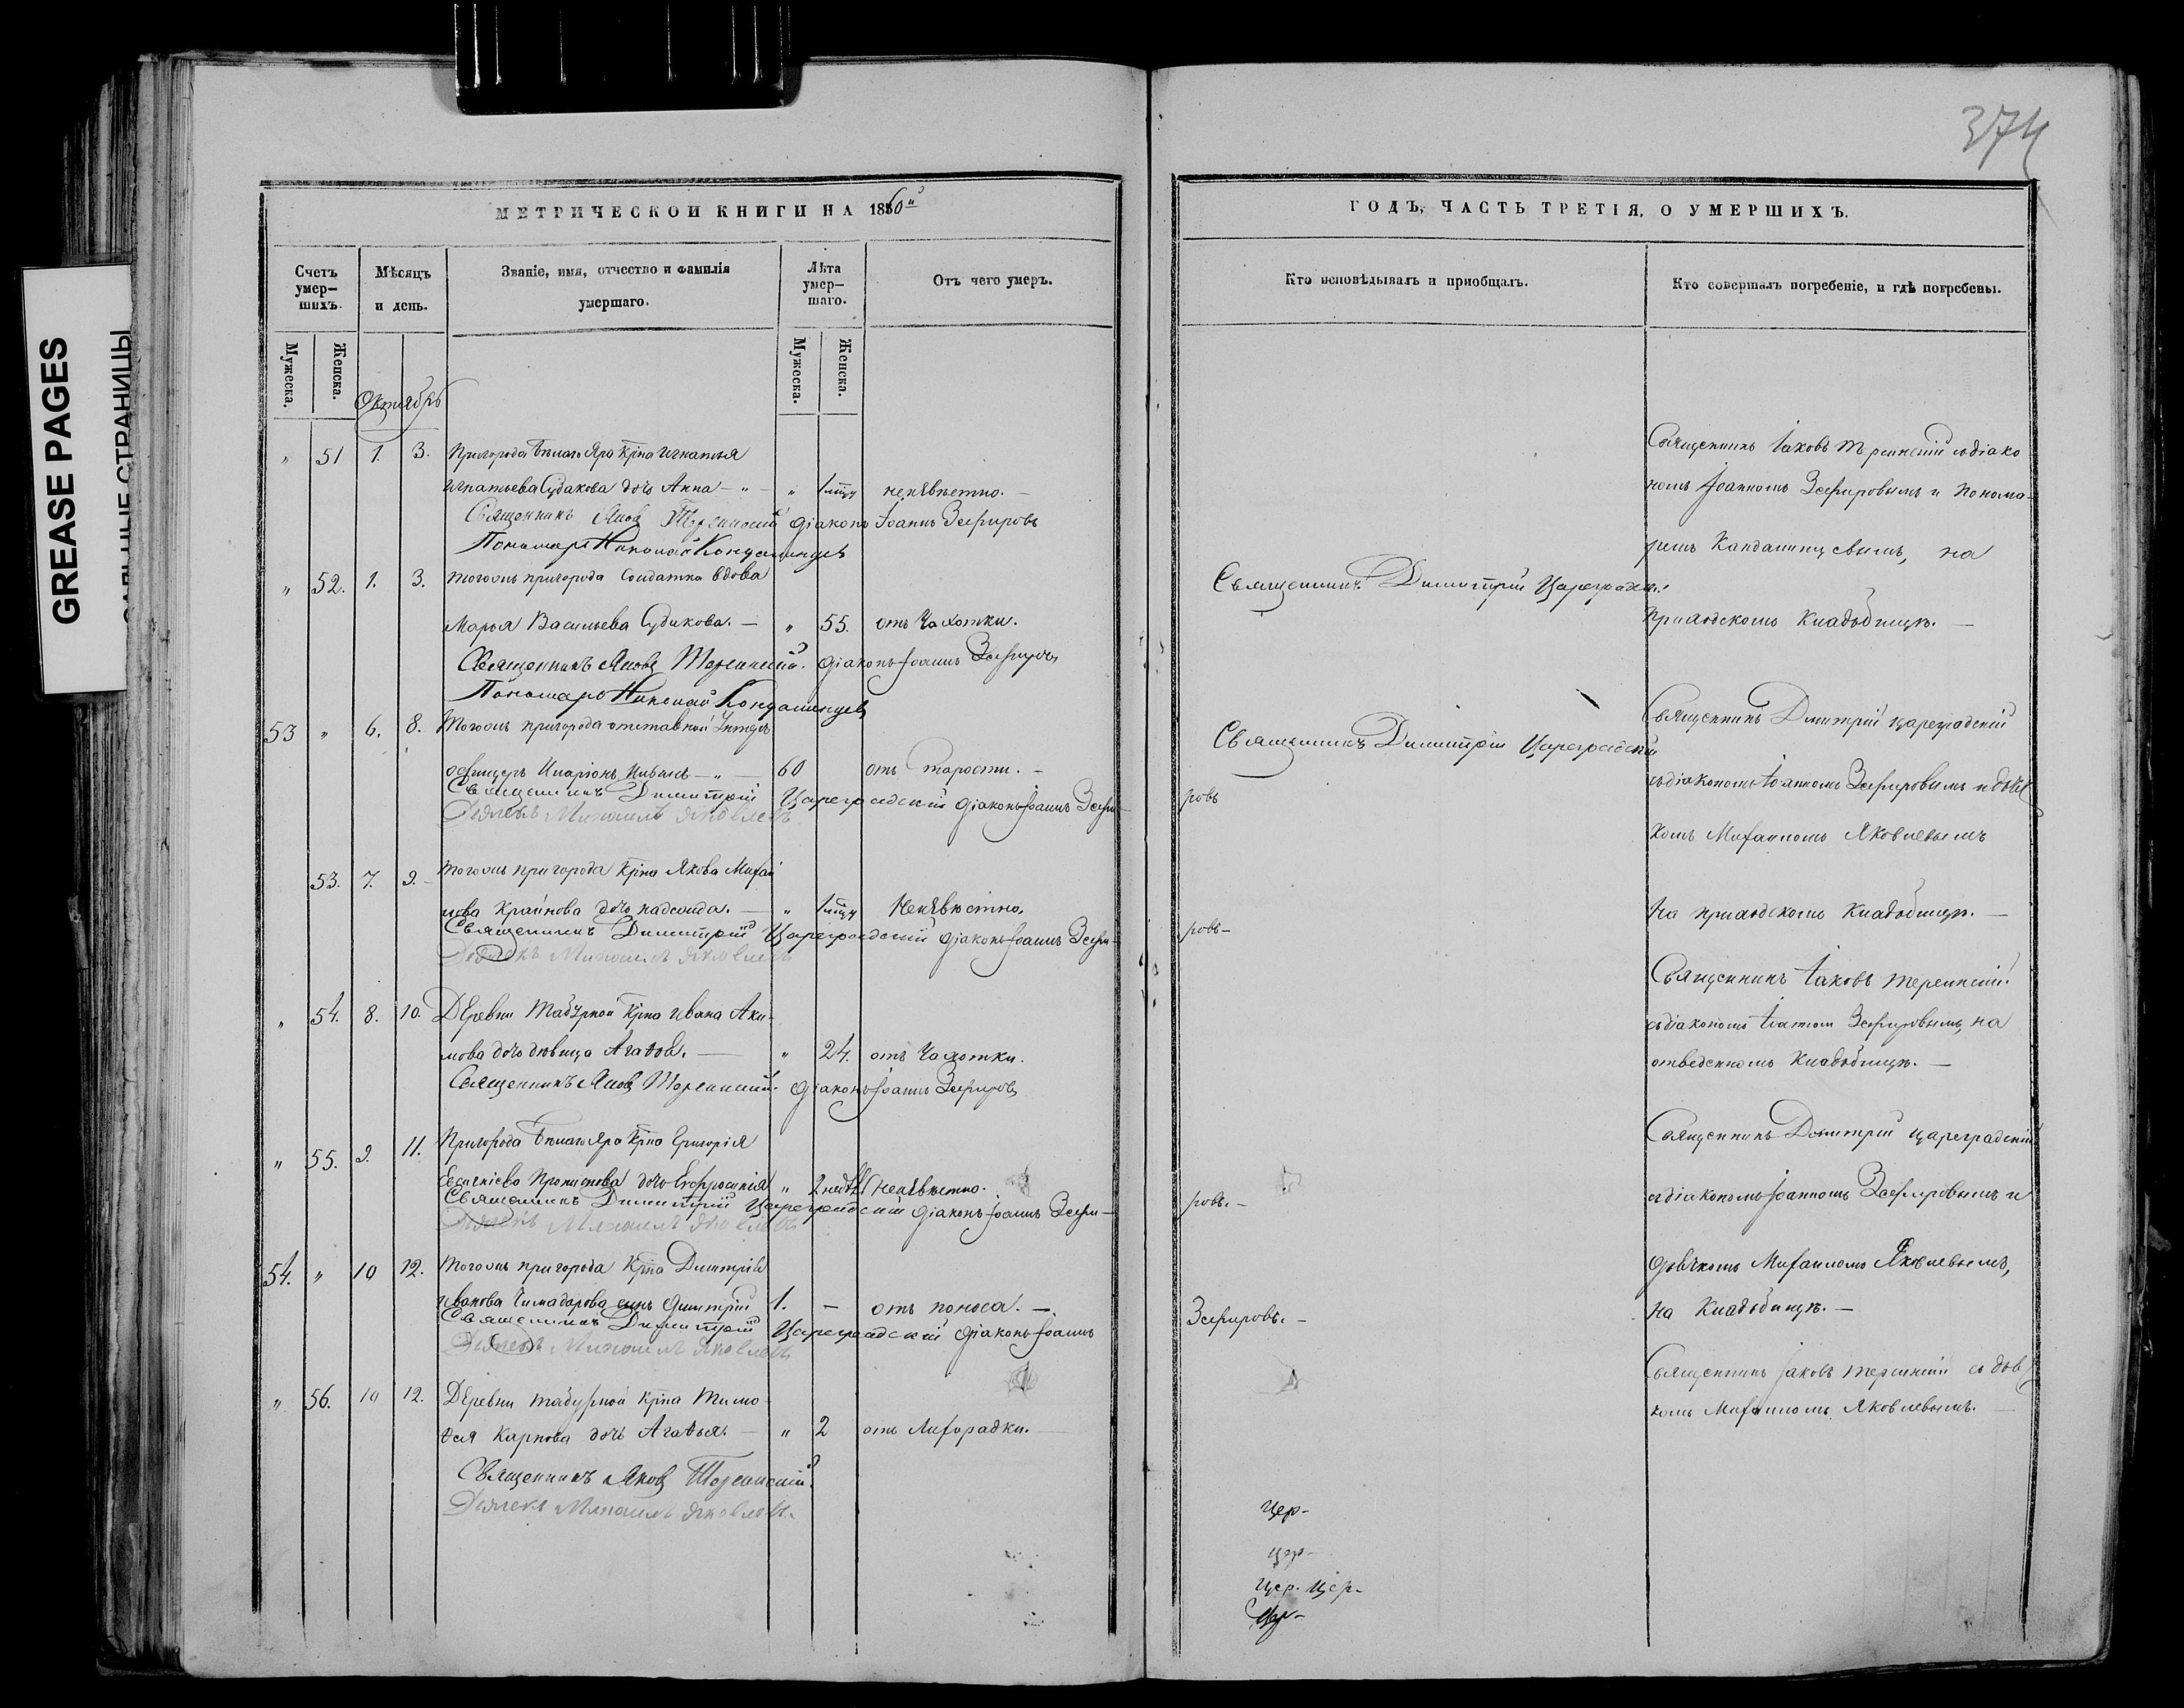 GREASE PAGES
САЛЬНЫЕ СТРАНИЦЫ
374
МЕТРИЧЕСКОЙ КНИГИ НА 1860й
Счетъ умер-шихъ.
Мѣсяцъ и день.
Званіе, имя, отчество и фамилія умершаго.
Лѣта умер-шаго.
Отъ чего умеръ.
Мужеска.
Женска.
Мужеска.
Женска.
Октябрь
" 51 1. 3. Пригорода Бѣлаго Яра Крна Игнатья
Игнатьева Судакова дочь Анна - " - " 1 неизвѣстно. -
Священникъ Яковъ Терсинскій Діаконъ Іоаннъ Зефировъ
Пономарь Николай Кондалинцевъ
" 52. 1. 3. Тогожъ пригорода Солдатка вдова
Марья Васильева Судакова. - " 55. отъ Чахотки.
Священникъ Яковъ Терсинскій. Діаконъ Іоаннъ Зефировъ
Пономарь Николай Кондалинцевъ
53 " 6. 8. Тогожъ пригорода отставной Унтеръ
офицеръ Иларіонъ - " - 60 отъ старости. -
Священникъ Димитрій Цареградскій Діаконъ Іоаннъ Зефи-
Дьячекъ Михаилъ Яковлевъ
53. 7. 9. Тогожъ пригорода Крна Якова Михай
лова Крайнова дочь Надежда. - " 1 Неизвѣстно.
Священникъ Димитрій Цареградскій Діаконъ Іоаннъ Зефи-
Дьячекъ Михаилъ Яковлевъ
" 54. 8. 10. Деревни Табурной Крна Ивана Аки-
мова дочь дѣвица Агаѳья. - " 24. отъ Чахотки.
Священникъ Яковъ Терсинскій. Діаконъ Іоаннъ Зефировъ
" 55. 9. 11. Пригорода Бѣлаго Яра Крна Григорія
дочь Евфросинія " 2 нед. Неизвѣстно.
Священникъ Димитрій Цареградскій Діаконъ Іоаннъ Зефи-
Дьячекъ Михаилъ Яковлевъ
54. " 10 12. Тогожъ пригорода Крна Димитрія
Иванова Чимадарова сынъ Димитрій 1. - отъ поноса. -
Священникъ Димитрій Цареградскій Діаконъ Іоаннъ
Дьячекъ Михаилъ Яковлевъ
" 56. 10 12. Деревни Табурной Крна Тимо
ѳея Карпова дочь Агаѳья. - " 2 отъ Лихорадки.
Священникъ Яковъ Терсинскій.
Дьячекъ Михаилъ Яковлевъ.
ГОДЪ, ЧАСТЬ ТРЕТІЯ, О УМЕРШИХЪ.
Кто исповѣдывалъ и пріобщалъ.
Кто совершалъ погребеніе, и гдѣ погребены.
Священникъ Іаковъ Терсинскій съ діако
номъ Іоанномъ Зефировымъ и понома-
ремъ Кандалинцевымъ, на
Священникъ Димитрій Цареградскій
приходскомъ Кладбищѣ. -
Священникъ Дмитрій Цареградскій
Священникъ Димитрій Цареградскій
съ діакономъ Іоанномъ Зефировымъ и дьяч
ровъ
комъ Михаиломъ Яковлевымъ
На приходскомъ Кладбищѣ. -
ровъ-
Священникъ Іаковъ Терсинскій
съ діакономъ Іоанномъ Зефировымъ, на
отведенномъ Кладбищѣ. -
Священникъ Димитрій Цареградскій
съ діакономъ Іоанномъ Зефировымъ и
ровъ. -
дьячкомъ Михаиломъ Яковлевымъ,
на Кладбищѣ. -
Зефировъ. -
Священникъ Іаковъ Терсинскій съ дьяч
комъ Михаиломъ Яковлевымъ.
Цер-
цер-
Цер. Цер-
Цер-